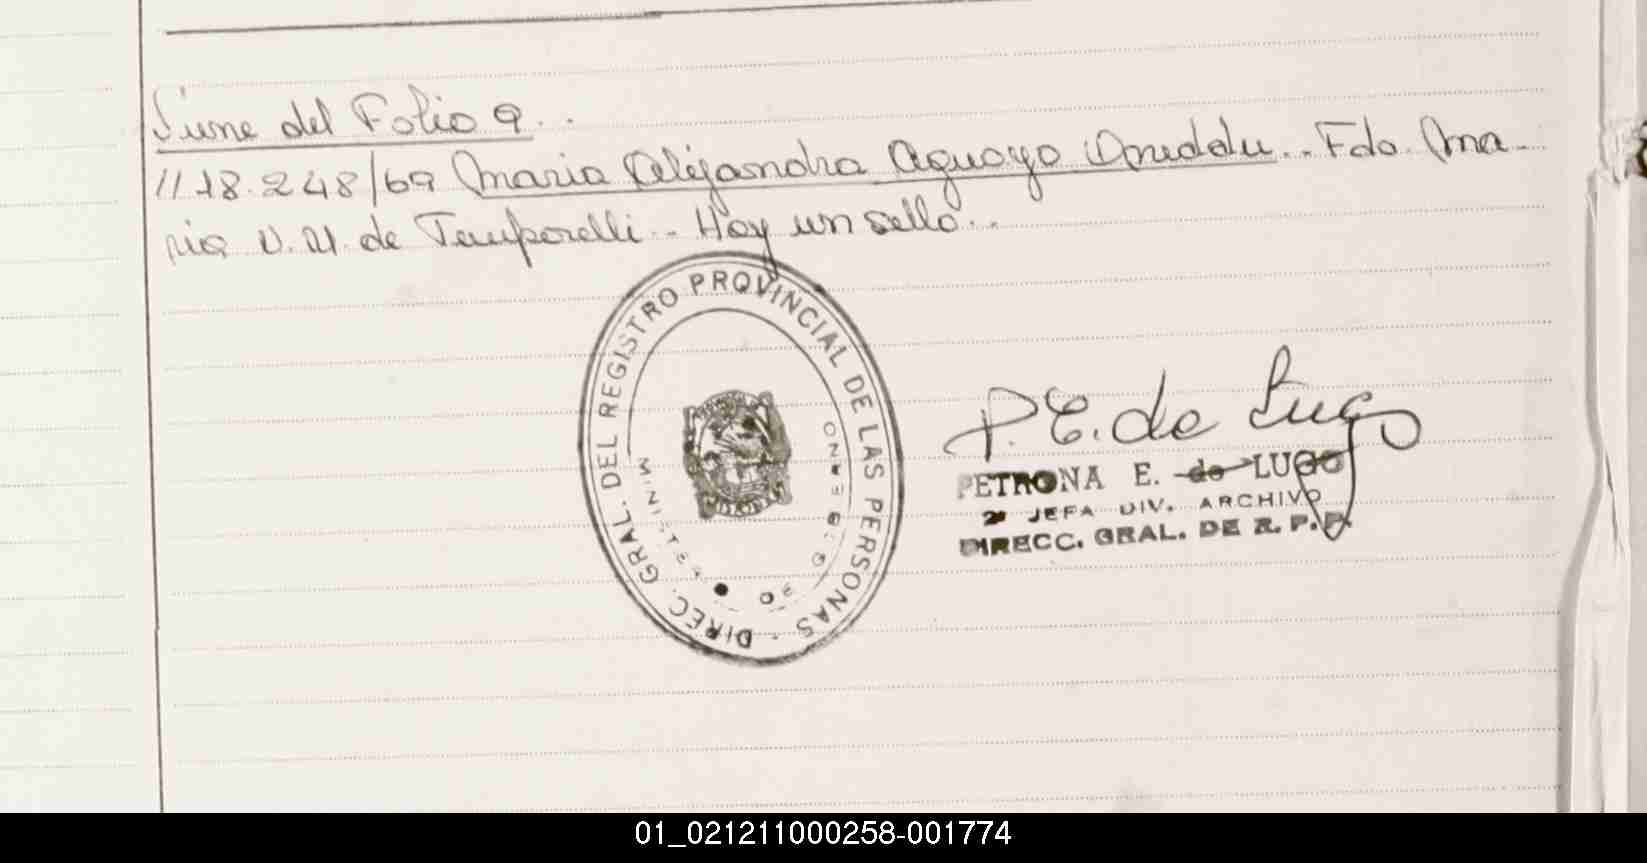 Viene del Folio 9..
//18.248/69 Maria Alejandra Aguayo Oneddu.. Fdo. Ma-
ria V. U. de Temporelli.. Hay un sello..
DIREC. GRAL. DEL REGISTRO PROVINCIAL DE LAS PERSONAS -
MINISTE DE GOBIERNO
P. E. de Lugo
PETRONA E. de LUGO
2ª JEFA DIV. ARCHIVO
DIRECC. GRAL. DE R. P. P.
01_021211000258-001774